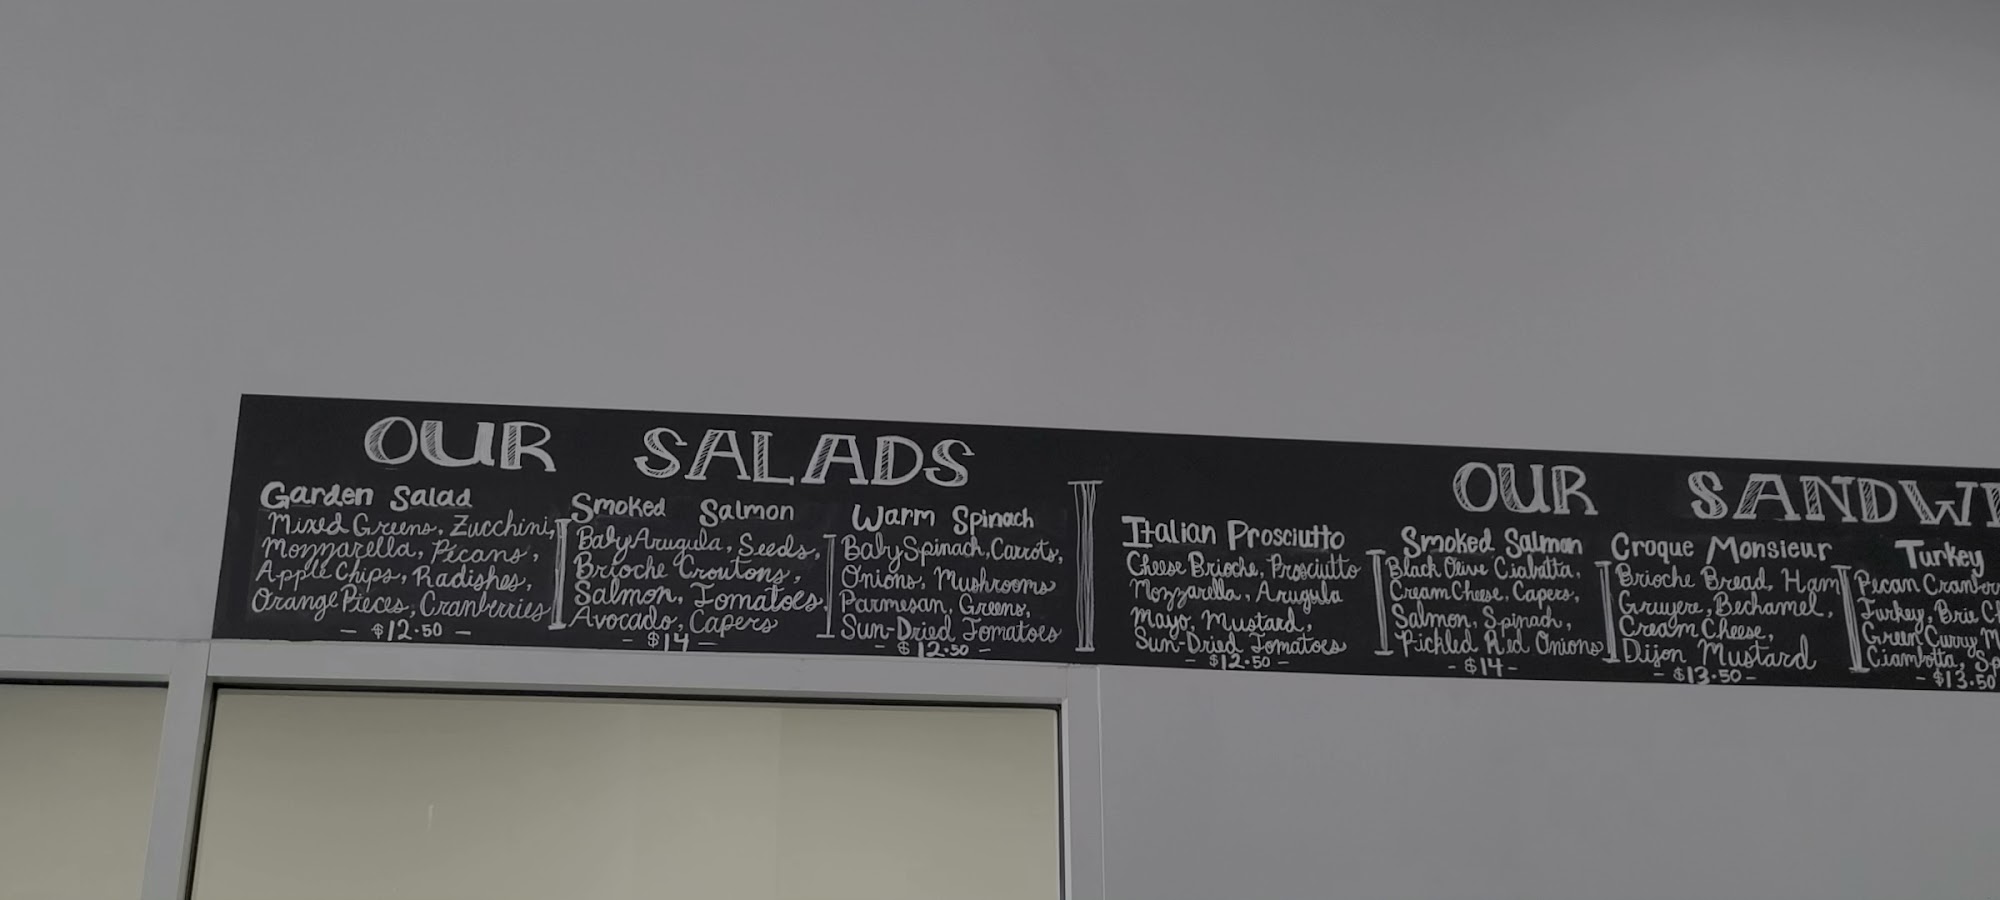 OUR SALADS
Garden Salad
Mixed Greens, Zucchini,
Mozzarella, Pecans,
Apple Chips, Radishes,
Orange Pieces, Cranberries
- $12.50 -
Smoked Salmon
Baby Arugula, Seeds,
Brioche Croutons,
Salmon, Tomatoes,
Avocado, Capers
- $14 -
Warm Spinach
Baby Spinach, Carrots,
Onions, Mushrooms
Parmesan, Greens,
Sun-Dried Tomatoes
- $12.50 -
OUR SANDWI
Italian Prosciutto
Cheese Brioche, Prosciutto
Mozzarella, Arugula
Mayo, Mustard,
Sun-Dried Tomatoes
- $12.50 -
Smoked Salmon
Black Olive Ciabatta,
Cream Cheese, Capers,
Salmon, Spinach,
Pickled Red Onions
- $14 -
Croque Monsieur
Brioche Bread, Ham
Gruyere, Bechamel,
Cream Cheese,
Dijon Mustard
- $13.50 -
Turkey
Pecan Cranber
Turkey, Brie C
Green Curry M
Ciambotta, Sp
- $13.50